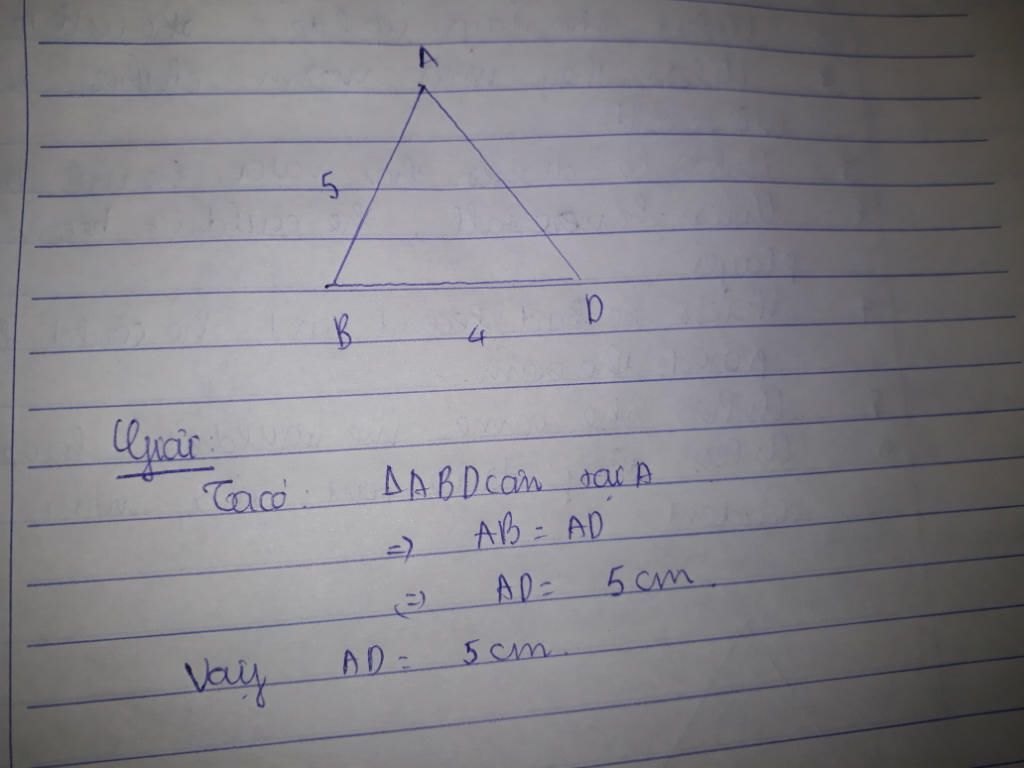 A
5
B
4
D
Giải:
Ta có: ΔABD cân tại A
=> AB = AD
(=) AD = 5 cm.
Vậy AD = 5 cm.